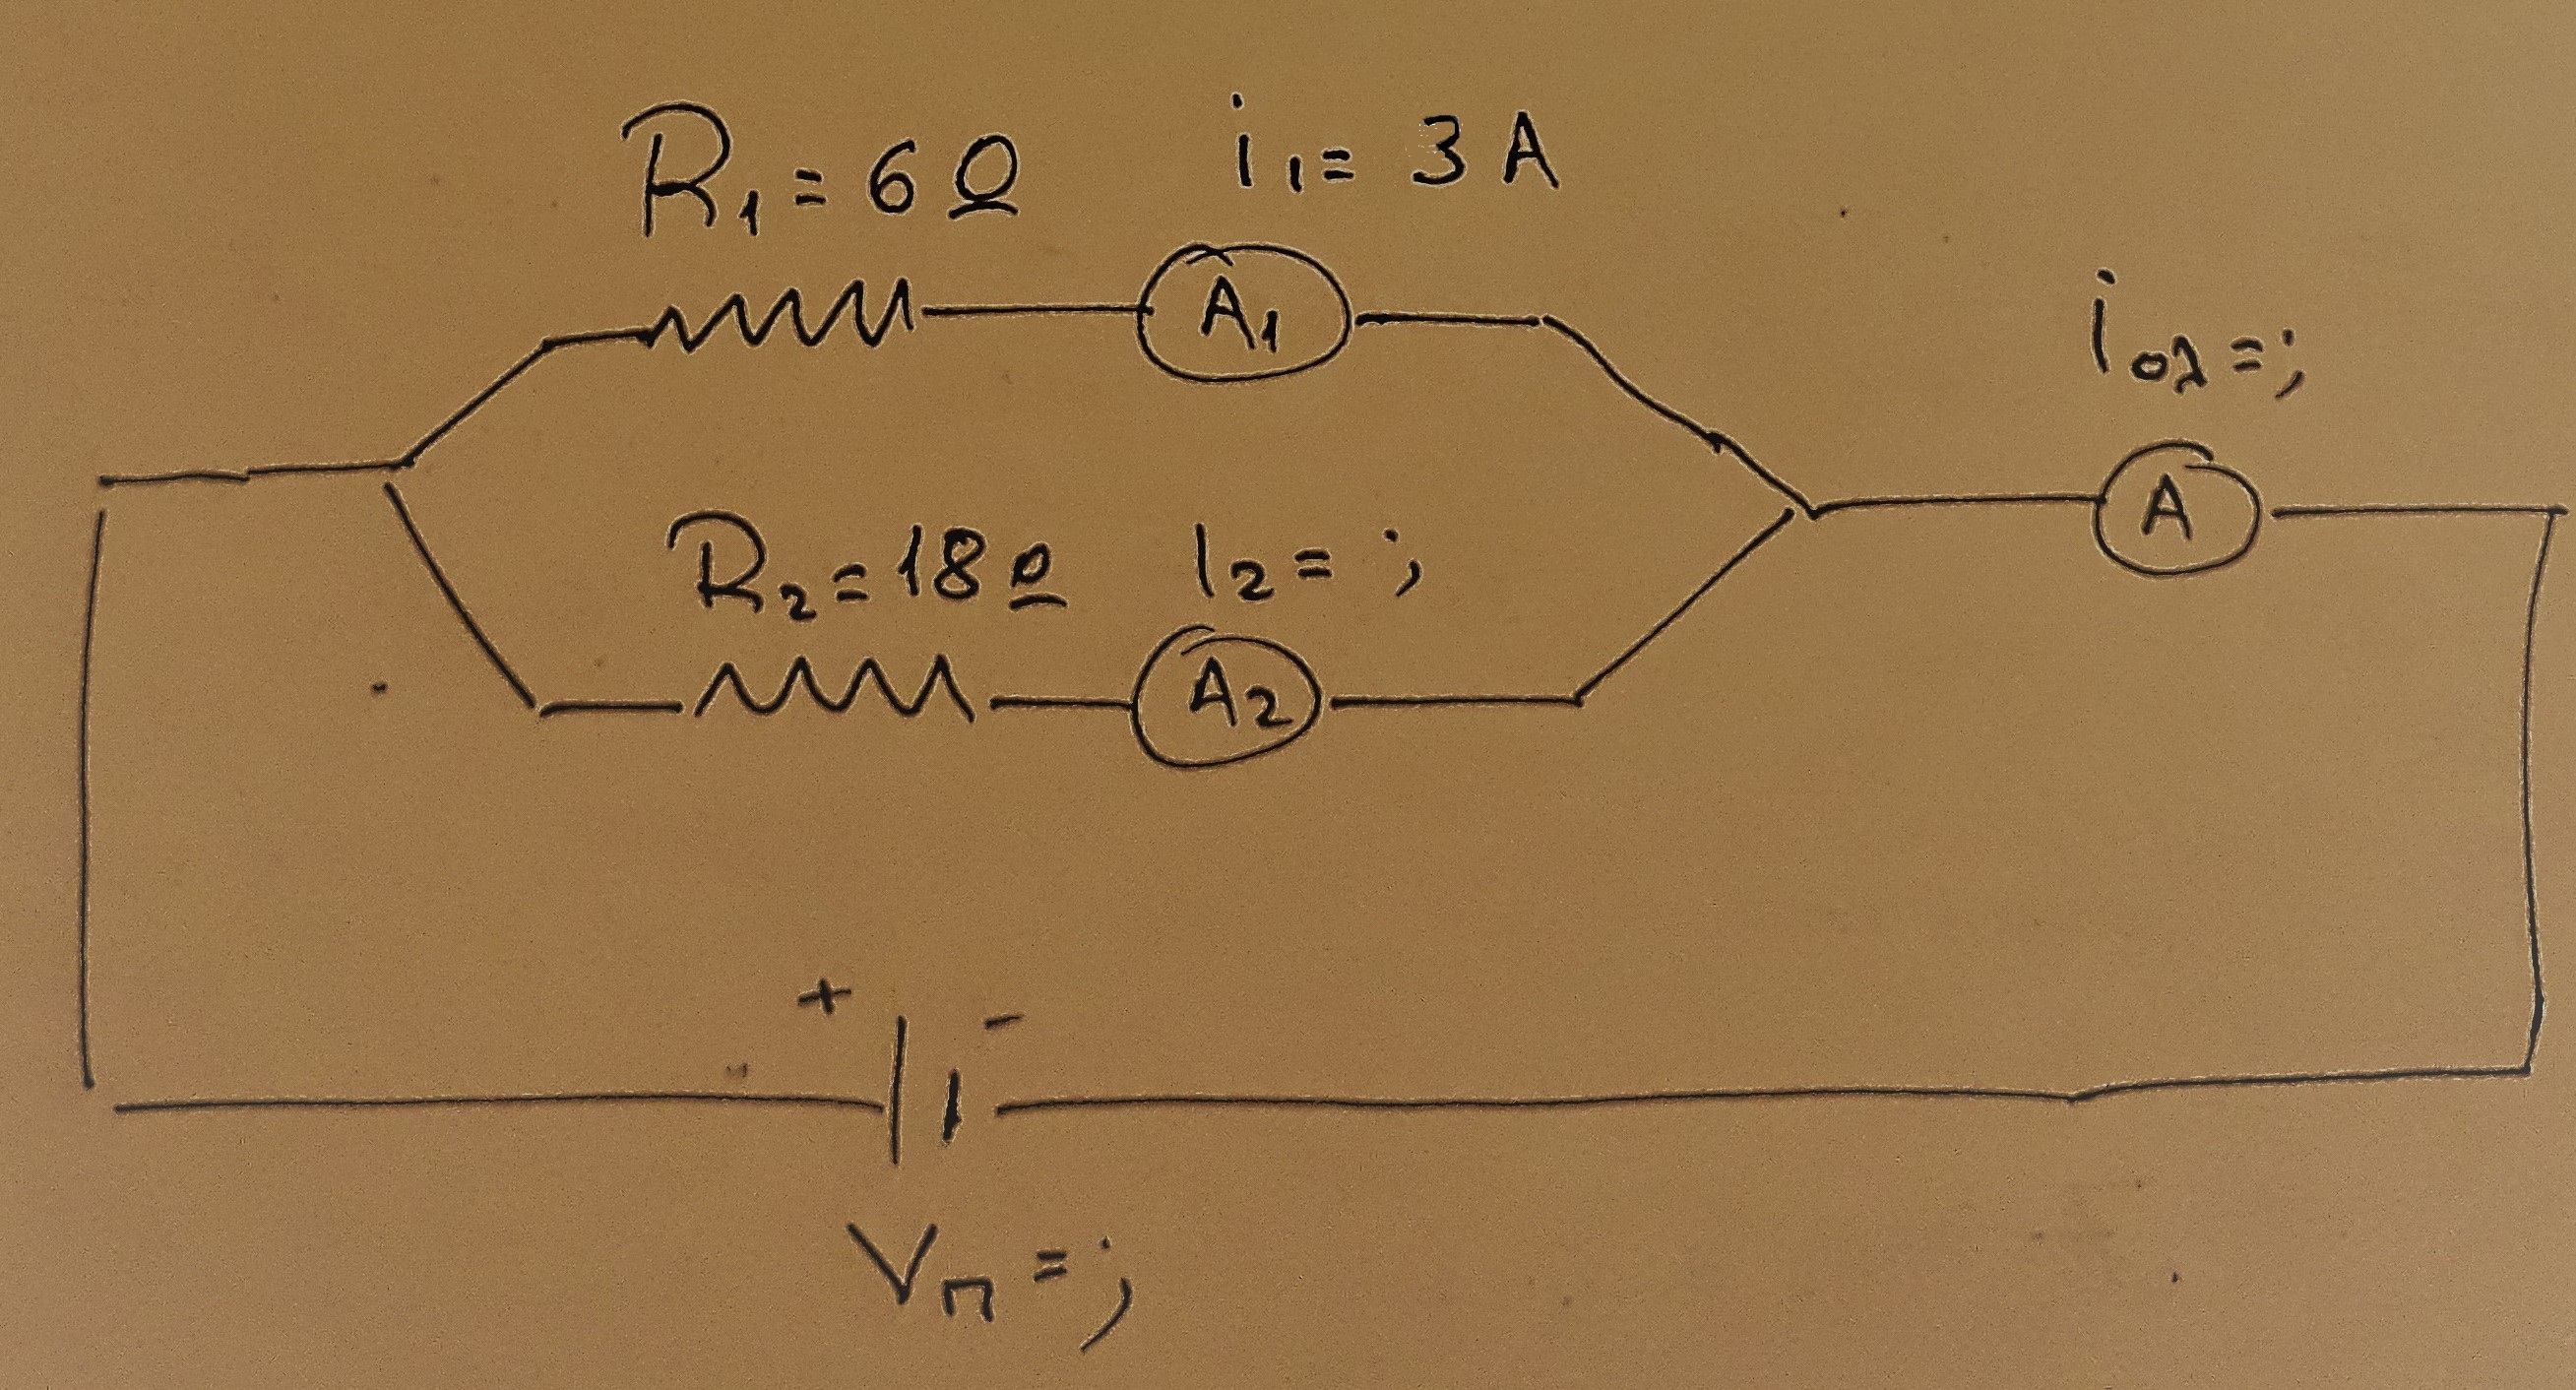 R₁ = 6 Ω i₁ = 3 A
A₁
i ολ = ;
A
R₂ = 18 Ω I₂ = ;
A₂
+ -
Vπ = ;